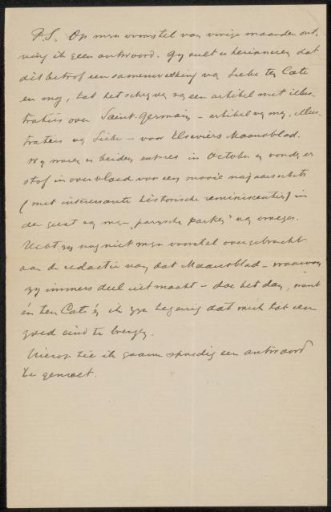 P.S. Op mijn voorstel van vorige maand ont-
ving ik geen antwoord. Gij zult u herinneren dat
dit betrof een samenwerking van Siebe ten Cate
en mij, tot het schrijven van een artikel met illus-
traties over Saint-Germain – artikel van mij, illus-
traties van Siebe – voor Elseviers Maandblad.
Wij waren er beiden in October en vonden er
stof in overvloed voor een mooie najaarsschets
(met interessante historische reminiscenties) in
den geest van mijn „parijsche parken" van vroeger.
Hebt gij nog niet mijn voorstel overgebracht
aan de redactie van dat Maandblad – waarvan
gij immers deel uitmaakt – doe het dan, want
én ten Cate én ik zijn begeerig dat werk tot een
goed eind te brengen.
Hierop zie ik gaarne spoedig een antwoord
te gemoet.